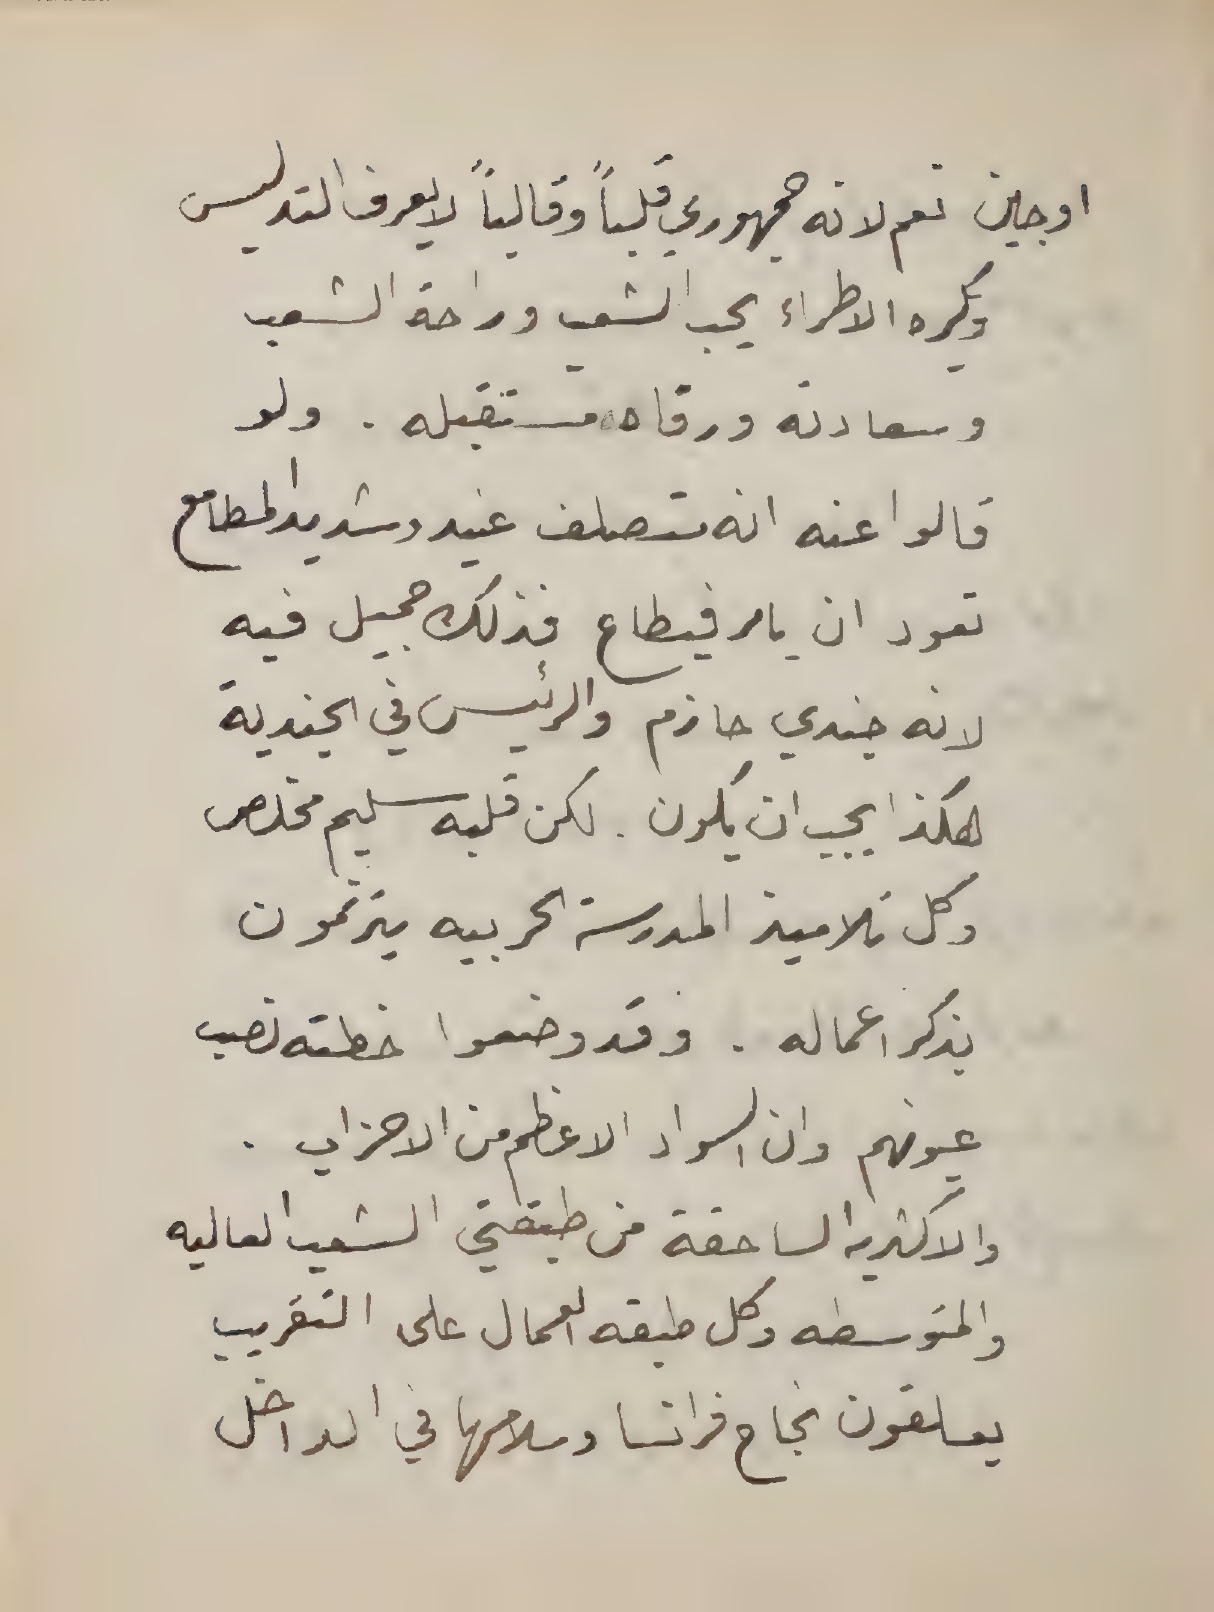 اوجين نعم لانه جمهوري قلباً وقالباً لا يعرف التدليس
ويكره الاطراء يحب الشعب وراحة الشعب
وسعادته ورقاه مستقبله . ولو
قالوا عنه انه متصلف عنيد وشديد المطامع
تعود ان يامر فيطاع فذلك جميل فيه
لانه جندي حازم والرئيس في الجندية
هكذا يجب ان يكون . لكن قلبه سليم مخلص
وكل تلاميذ المدرسة الحربيه يترنمون
بذكر اعماله . وقد وضعوا خطته نصب
عيونهم وان السواد الاعظم من الاحزاب .
والاكثريه الساحقة من طبقتي الشعب العاليه
والمتوسطه وكل طبقه العمال على التقريب
يعلقون نجاح فرانسا وسلامها في الداخل